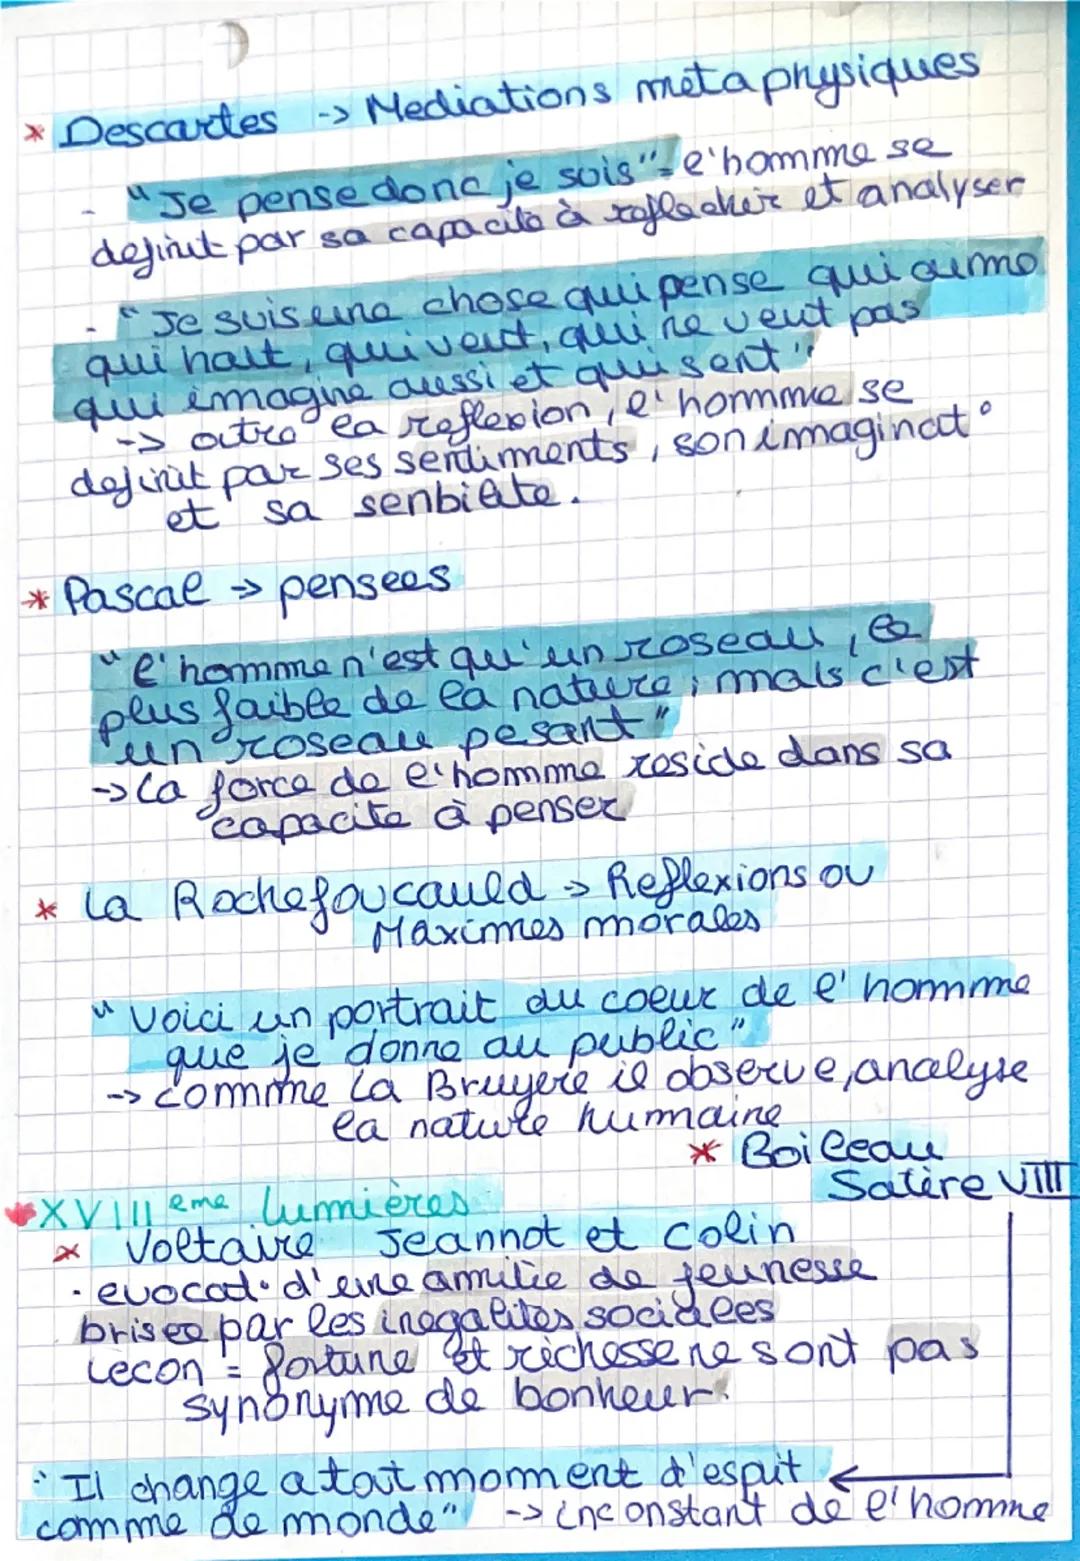 * Descartes -> Mediations metaphysiques
- "Je pense donc je suis" = l'homme se
definit par sa capacite à reflechir et analyser
- "Je suis une chose qui pense qui aime
qui hait, qui veut, qui ne veut pas
qui imagine aussi et qui sent"
-> outre la reflexion, l'homme se
definit par ses sentiments, son imaginat°
et sa senbilite.
* Pascal -> pensees
"l'homme n'est qu'un roseau, le
plus faible de la nature; mais c'est
un roseau pesant"
-> La force de l'homme reside dans sa
capacite à penser
* La Rochefoucauld -> Reflexions ou
Maximes morales
"Voici un portrait du coeur de l'homme
que je donne au public"
-> comme La Bruyere il observe, analyse
la nature humaine
* Boileau
Satire VIII
XVIII eme lumières
* Voltaire Jeannot et Colin
• evocat° d'une amitie de jeunesse
brisee par les inegalites sociales
Lecon = fortune et richesse ne sont pas
synonyme de bonheur.
"Il change a tout moment d'esprit
comme de monde" -> inconstant de l'homme